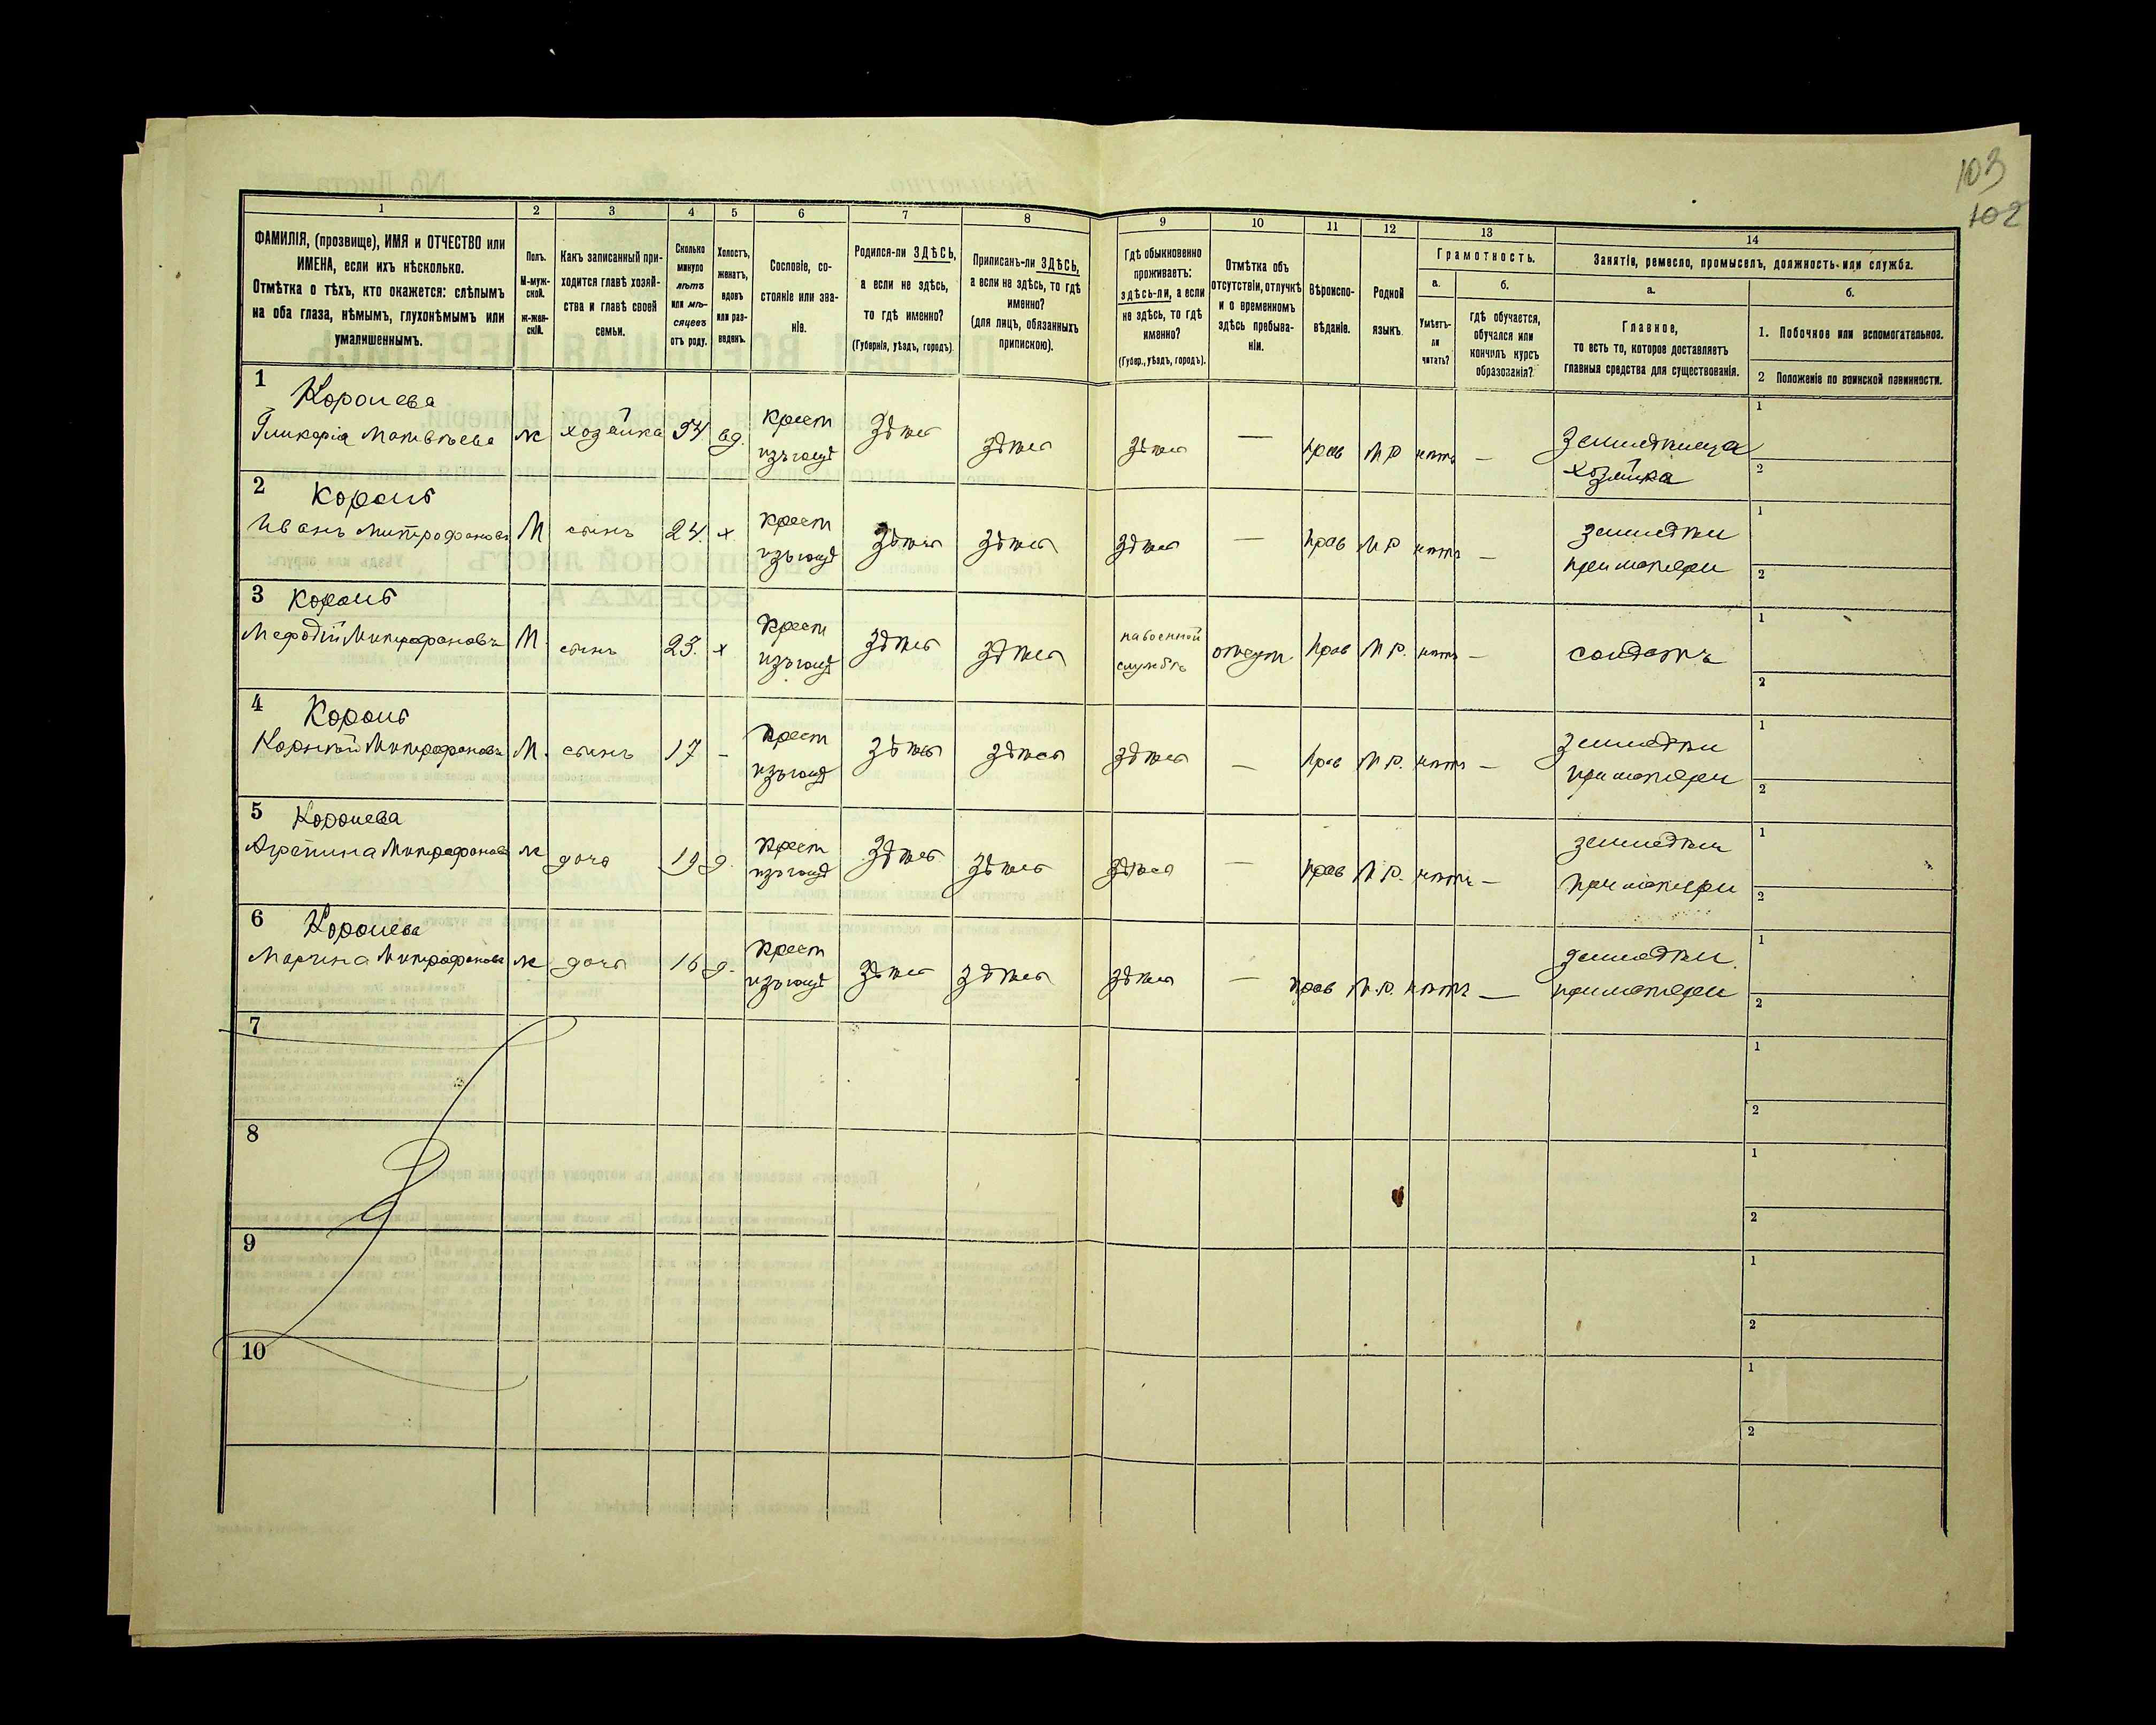 103
102
1
2
3
4
5
6
7
8
9
10
11
12
13
14
ФАМИЛІЯ, (прозвище), ИМЯ и ОТЧЕСТВО или
ИМЕНА, если ихъ нѣсколько.
Отмѣтка о тѣхъ, кто окажется: слѣпымъ
на оба глаза, нѣмымъ, глухонѣмымъ или
умалишеннымъ.
Полъ.
М-муж-
ской.
ж-жен-
скій.
Какъ записанный при-
ходится главѣ хозяй-
ства и главѣ своей
семьи.
Сколько
минуло
лѣтъ
или мѣ-
сяцевъ
отъ роду.
Холостъ,
женатъ,
вдовъ
или раз-
веденъ.
Сословіе, со-
стояніе или зва-
ніе.
Родился-ли ЗДѢСЬ,
а если не здѣсь,
то гдѣ именно?
(Губернія, уѣздъ, городъ)
Приписанъ-ли ЗДѢСЬ,
а если не здѣсь, то гдѣ
именно?
(для лицъ, обязанныхъ
припискою).
Гдѣ обыкновенно
проживаетъ:
здѣсь-ли, а если
не здѣсь, то гдѣ
именно?
(Губер., уѣздъ, городъ).
Отмѣтка объ
отсутствіи, отлучкѣ
и о временномъ
здѣсь пребыва-
ніи.
Вѣроиспо-
вѣданіе.
Родной
языкъ.
Грамотность.
а.
Умѣетъ-
ли
читать?
б.
гдѣ обучается,
обучался или
кончилъ курсъ
образованія?
Занятіе, ремесло, промыселъ, должность или служба.
а.
Главное,
то есть то, которое доставляетъ
главныя средства для существованія.
б.
1. Побочное или вспомогательное.
2 Положеніе по воинской повинности.
1
Королева
Гликерія Матвѣева ж хозяйка 54 вд. Крест здѣсь здѣсь здѣсь — прав М Р нѣтъ —
хозяйка
1
2
2 Король
Иванъ Митрофановъ М сынъ 24. х. Крест здѣсь здѣсь здѣсь — прав М Р нѣтъ —
при матери
1
2
3 Король
Мефодій Митрофановъ М. сынъ 23. х Крест здѣсь здѣсь на военной службѣ отсут прав М Р. нѣтъ — солдатъ
1
2
4 Король
Корнѣй Митрофановъ М. сынъ 17 - Крест здѣсь здѣсь здѣсь — прав М Р. нѣтъ —
при матери
1
2
5 Королева
Агрепина Митрофанова ж дочь 19 д. Крест здѣсь здѣсь здѣсь — прав М Р. нѣтъ —
при матери
1
2
6 Королева
Марина Митрофанова ж дочь 16 д. Крест здѣсь здѣсь здѣсь — прав М.Р. нѣтъ —
при матери
1
2
7
1
2
8
1
2
9
1
2
10
1
2